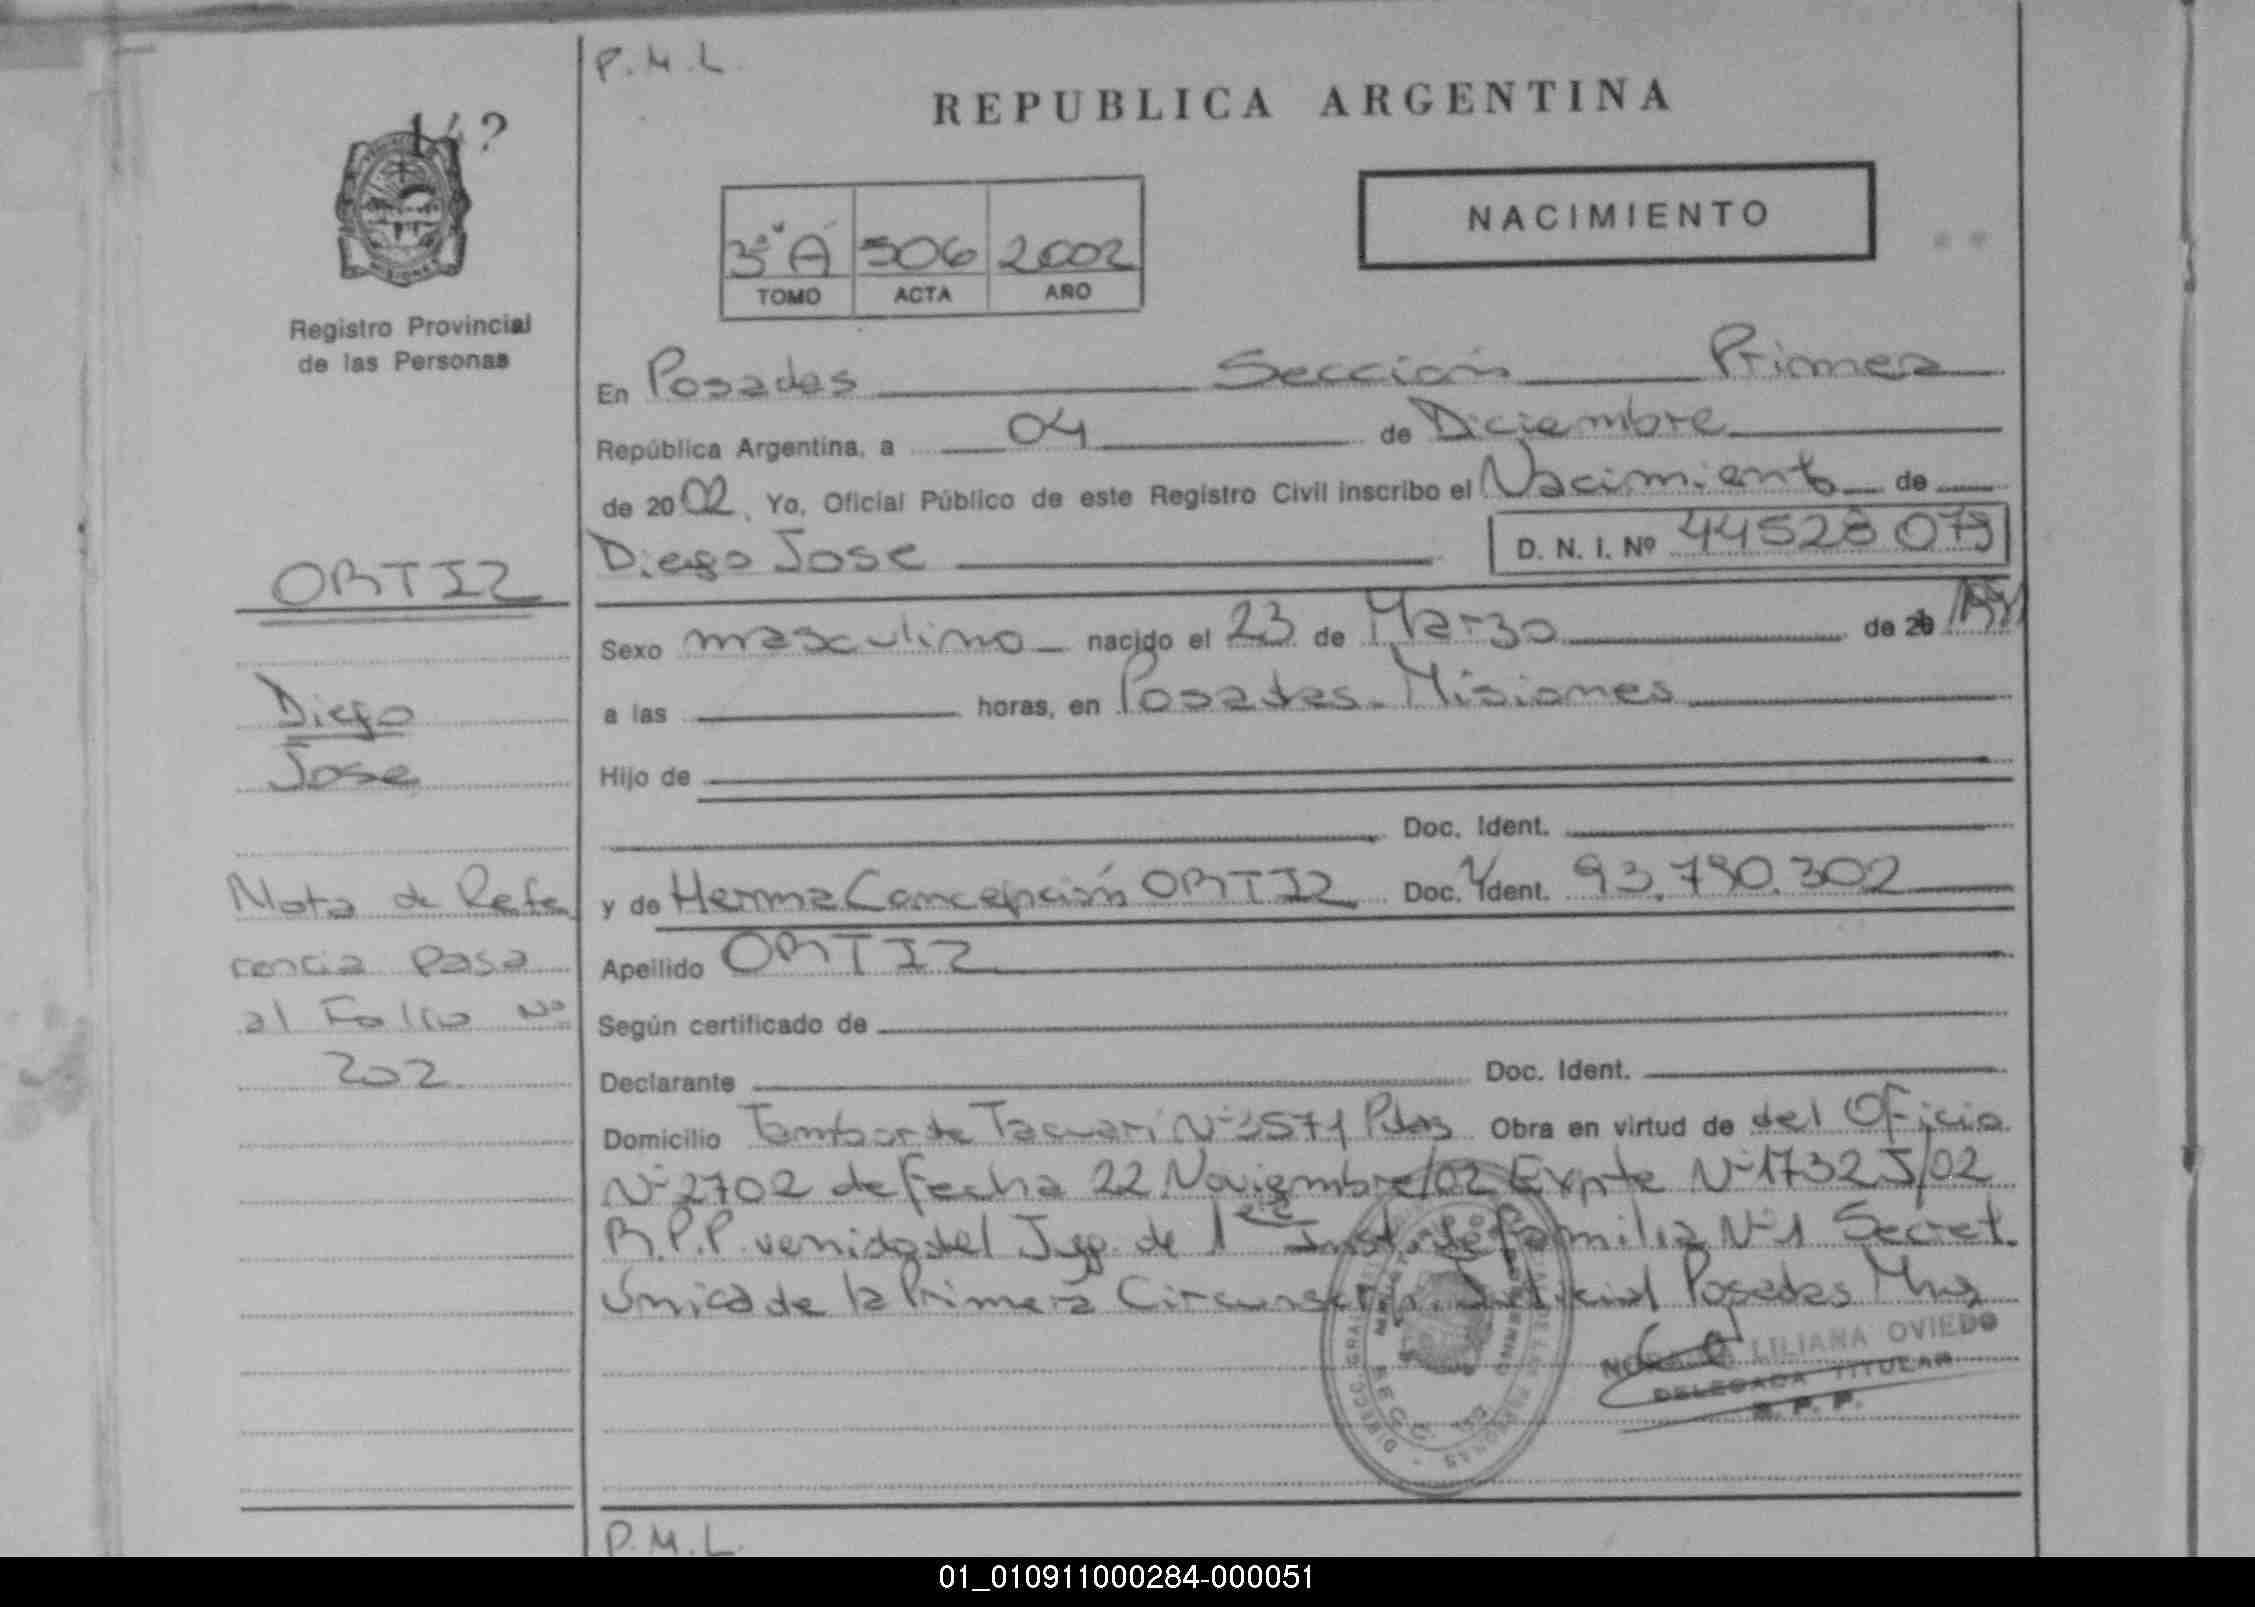 P.M.L.
REPUBLICA ARGENTINA
NACIMIENTO
3º A 506 2002
TOMO ACTA AÑO
Registro Provincial
de las Personas
En Posadas Sección Primera
República Argentina, a 04 de Diciembre
de 2002, Yo, Oficial Público de este Registro Civil inscribo el Nacimiento de
Diego Jose D. N. I. Nº 44528079
ORTIZ
Sexo masculino nacido el 23 de Marzo de 20
Diego
a las horas, en Posadas - Misiones
Jose
Hijo de
Doc. Ident.
Nota de Refe
y de Herma Concepción ORTIZ Doc. Ident. 93.790.302
rencia Pasa
Apellido ORTIZ
al Folio Nº
Según certificado de
202
Declarante Doc. Ident.
Domicilio Tambor de Tacuari Nº 3571 Pdas Obra en virtud de del Oficio
Nº 2702 de fecha 22 Noviembre/02 Expte Nº 1732 J/02
R.P.P. venido del Juzg. de 1era Inst. de familia Nº 1 Secret.
Única de la Primera Circunscrip. Judicial Posadas Mnes
LILIANA OVIEDO
DELEGADA TITULAR
R. P. P.
P.M.L.
01_010911000284-000051